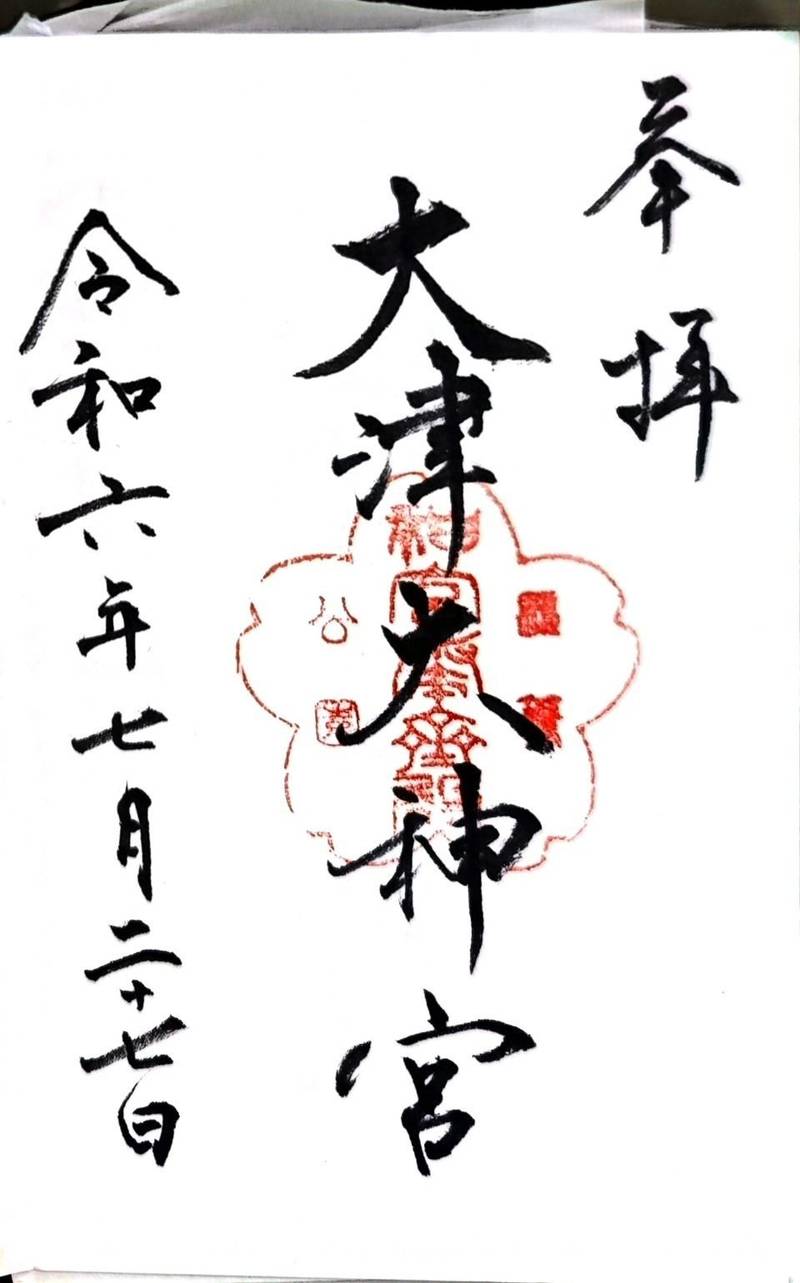 奉拝
大津大神宮
令和六年七月二十七日